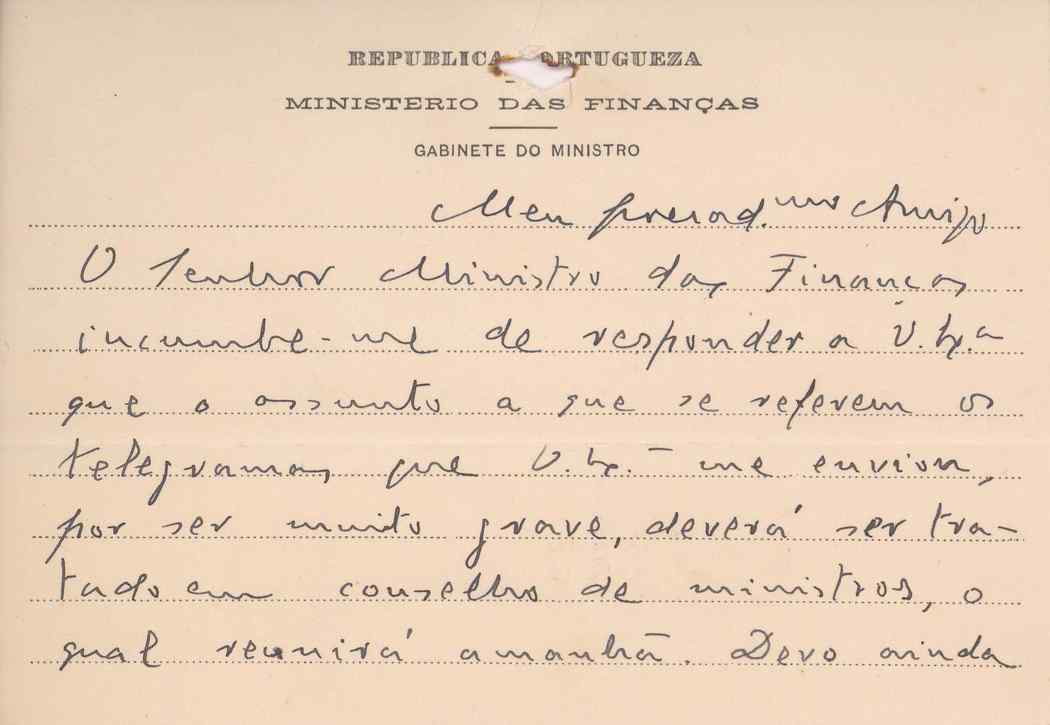 REPUBLICA PORTUGUEZA
MINISTERIO DAS FINANÇAS
GABINETE DO MINISTRO
Meu prezad.mo Amigo
O Senhor Ministro das Finanças
incumbe-me de responder a V. Ex.a
que o assunto a que se referem os
telegramas, que V. Ex.a me enviou,
por ser muito grave, deverá ser tra-
tado em conselho de ministros, o
qual reunirá amanhã. Devo ainda